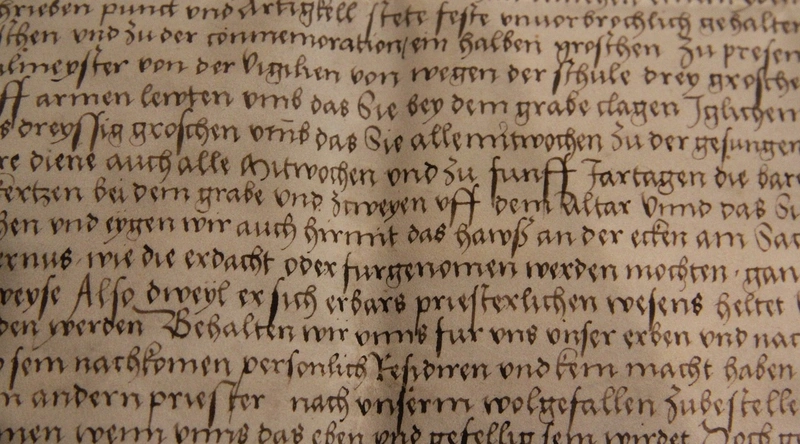 hrieben punct vnd Artigkell stete feste vnuorbrochlich gehalten
schen vnd zu der conmemoration ein halben groschen Zu presen
ulmeyster von der Vigilien von wegen der schule drey grosche
ff armen lewten vmb das Sie bey dem grabe clagen Iglichen
s dreyssig groschen vmb das Sie alle mitwochen Zu der gesungen
re diene auch alle Mitwochen vnd Zu funff Jartagen die bare
kertzen bei dem grabe vnd Zcweyen vff dem Altar Vnnd das Si
zen vnd eygen wir auch hirmit das hawß an der ecken am Sac
ernus wie die erdacht oder furgenomen werden mochten gan
weyse Also dweyl er sich erbars priesterlichen wesens heltet
den werden Behalten wir vnns fur vns vnser erben vnd nac
sein nachkomen personlich Residiren vnd kein macht haben
n andern priester nach vnserm wolgefallen Zubestelle
men wenn vnns das eben vnd gefellig sein wirdet Doch